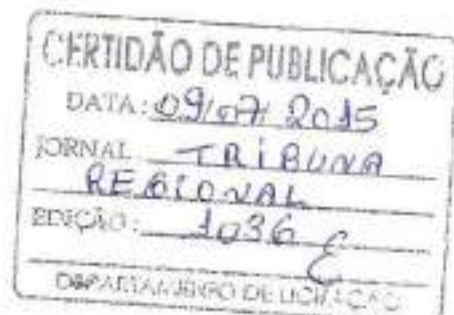 CERTIDÃO DE PUBLICAÇÃO
DATA: 09/07/2015
JORNAL TRIBUNA
REGIONAL
EDIÇÃO: 1036
DEPARTAMENTO DE LICITAÇÃO